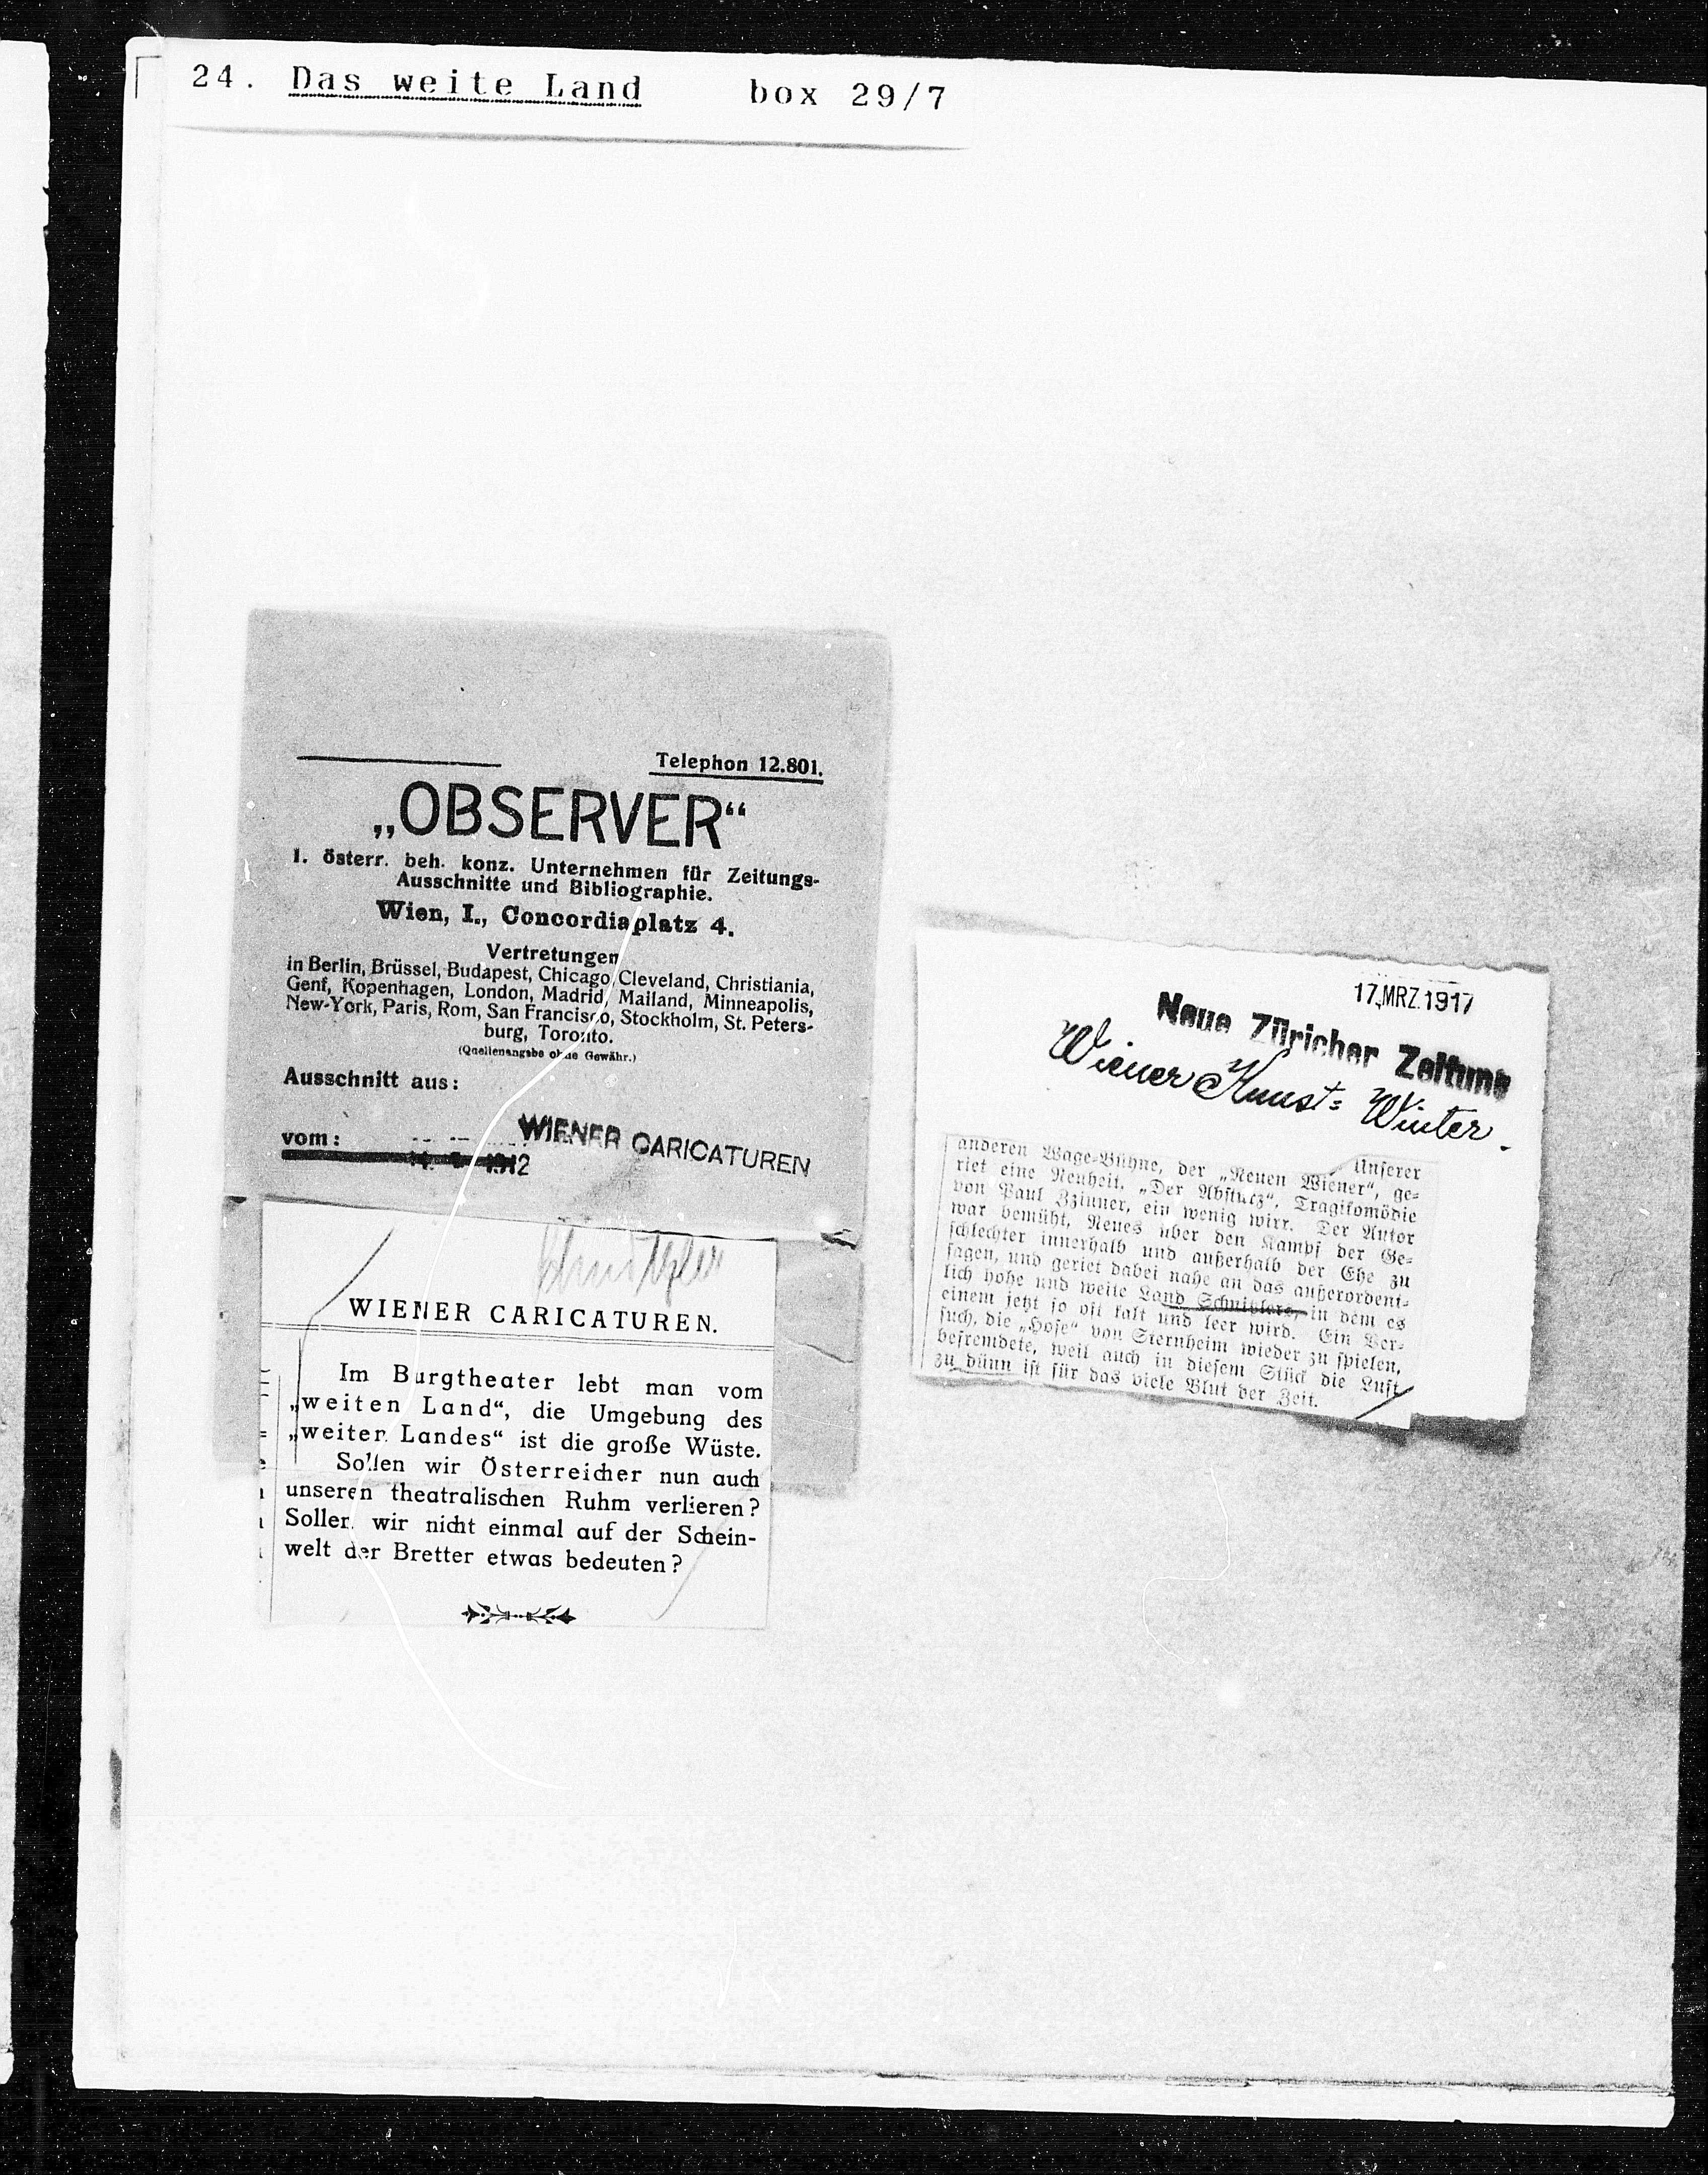 24. Das weite Land box 29/7
Telephon 12.801.
„OBSERVER“
I. österr. beh. konz. Unternehmen für Zeitungs-
Ausschnitte und Bibliographie.
Wien, I., Concordiaplatz 4.
Vertretungen
in Berlin, Brüssel, Budapest, Chicago, Cleveland, Christiania,
Genf, Kopenhagen, London, Madrid, Mailand, Minneapolis,
New-York, Paris, Rom, San Francisco, Stockholm, St. Peters-
burg, Toronto.
(Quellenangabe ohne Gewähr.)
Ausschnitt aus:
WIENER CARICATUREN
vom: 1912
Schnitzler
WIENER CARICATUREN.
Im Burgtheater lebt man vom
„weiten Land“, die Umgebung des
„weiten Landes“ ist die große Wüste.
Sollen wir Österreicher nun auch
unseren theatralischen Ruhm verlieren?
Sollen wir nicht einmal auf der Schein-
welt der Bretter etwas bedeuten?
17. MRZ. 1917
Neue Züricher Zeitung
Wiener Kunst-Winter.
Unserer
anderen Wage-Bühne, der „Neuen Wiener“, ge-
riet eine Neuheit, „Der Absturz“, Tragikomödie
von Paul Zzinner, ein wenig wirr. Der Autor
war bemüht, Neues über den Kampf der Ge-
schlechter innerhalb und außerhalb der Ehe zu
sagen, und geriet dabei nahe an das außerordent-
lich hohe und weite Land Schnitzlers, in dem es
einem jetzt so oft kalt und leer wird. Ein Ver-
such, die „Hose“ von Sternheim wieder zu spielen,
befremdete, weil auch in diesem Stück die Luft
zu dünn ist für das viele Blut der Zeit.